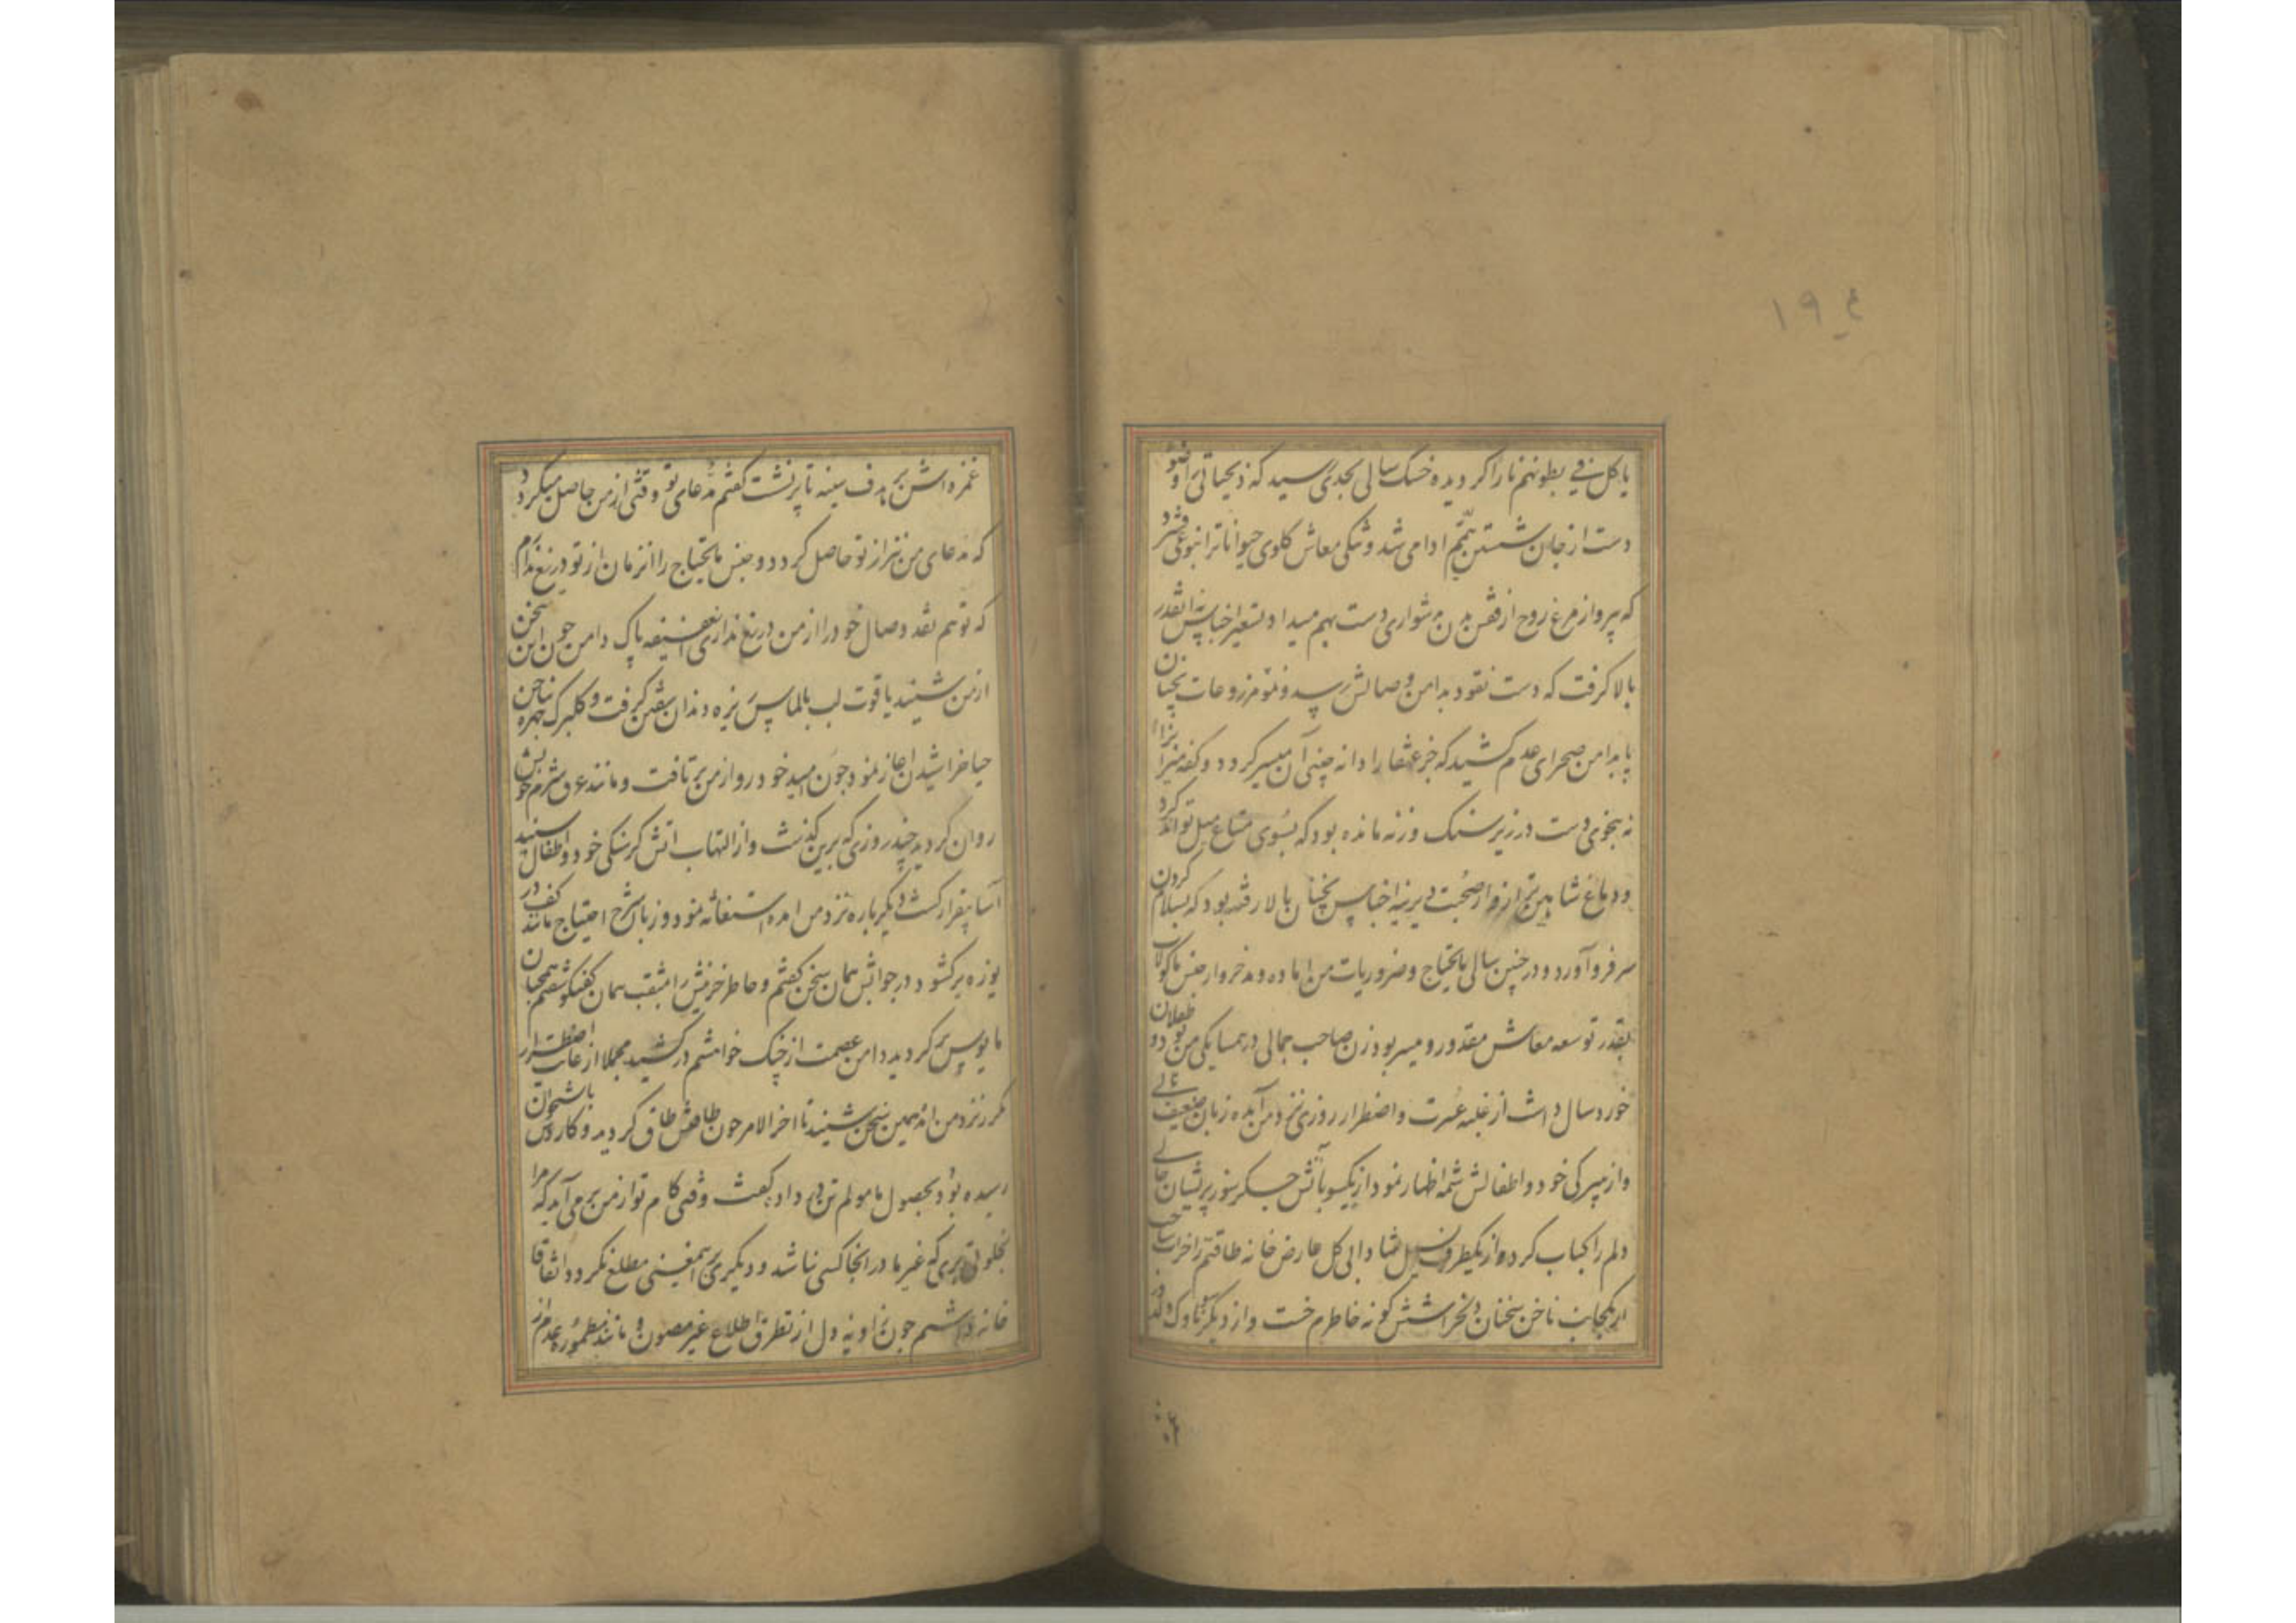 ۱۹۴
یاکل فی بطونهم نارا کردیده خشک سالی بجدی رسید که ذیحیاتی را وضو
دست از جان شستن تیمم ادا می شد و تنکی معاش کلوی حیوانات را نبوعی فشرد
که پرواز مرغ روح از قفس بدن بدشواری دست بهم میداد تسعیر اجناس نه انقدر
بالا کرفت که دست نقود بدامن وصالش رسد و نمو مزروعات نچنان
پا بدامن صحرای عدم کشید که جز عنقا را دانه چینی آن میسر کردد و کفه میزان را
نه بنحوی دست در زیر سنک وزنه مانده بود که بسوی متاع میل تواند کرد
و دماغ شاهین ترازو از صحبت دیرینه اجناس نچنان بالا رفته بود که بسلام کردن
سر فرو آورد و در چنین سالی مایحتاج و ضروریات من اماده و مدخر وار جنس ماکولات
بقدر توسعه معاش مقدور و میسر بود زن صاحب جمالی در همسایکی من بود دو طفلان
خوردسال داشت از غلبه عسرت و اضطرار روزی نزد من آمده زبان ضعیف نالی
واز میر کی خود و اطفالش شمه اظهار نمود از یکسو بآتش جسکر سوز پریشان حالی
دلم را کباب کرده از یکطرف سیل شادابی کل عارض خانه طاقتم را خراب ساخت
از یکجانب ناخن سخنان دلخراشش کونه خاطرم خست و از دیکر سو ناوک دلدوز
غمزه اش بر هدف سینه تا پر نشست کفتم مدعای تو وقتی از من حاصل میکردد
که مدعای من نیز از تو حاصل کردد و جنس مایحتاج را انزمان از تو دریغ ندارم
که تو هم نقد وصال خود را از من دریغ نداری ان عفیفه پاک دامن چون این سخن
از من شنید یاقوت لب بالماس ریزه دندان سفتن کرفت و کلبرک چهره بناخن
حیا خراشیدن اغاز نمود چون امید خود رو از من برتافت و مانند عرق شرم خویش
روان کردید چند روزی که برین کذشت و از التهاب اتش کرسنکی خود و اطفال سپند
آسا بیقرار کشت دیکر باره نزد من امده استغاثه نمود و زبان شرح احتیاج مانند کف در
یوزه بر کشود در جوابش همان سخن کفتم و خاطر حزینش را بمثقب همان کفتکو سفتم همچنان
مایوس بر کردید دامن عصمت از چنک خواهشم در کشید مجملا از غایت اضطرار
مکرر نزد من امد همین سخن شنید تا اخر الامر چون طاقتش طاق کردید و کار باستخوان
رسیده بود بحصول مامولم تن در داد کفت وقتی کام تو از من بر می آید که مرا
بخلوتی بری که غیر ما در انجا کسی نباشد و دیکری برین معنی مطلع نکردد اتفاقا
خانه داشتم چون زاویه دل از تطرق اطلاع غیر مصون و مانند مطموره عدم از